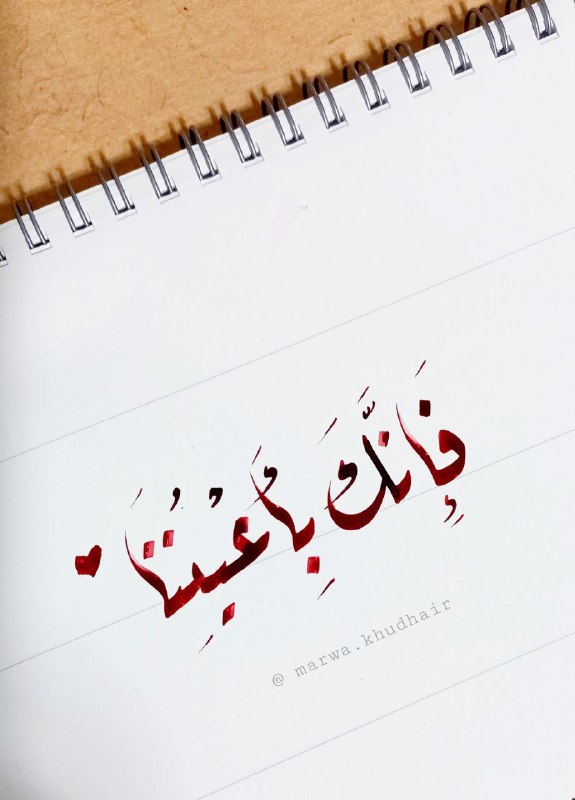 فَإِنَّكَ بِأَعْيُنِنَا
@ marwa.khudhair